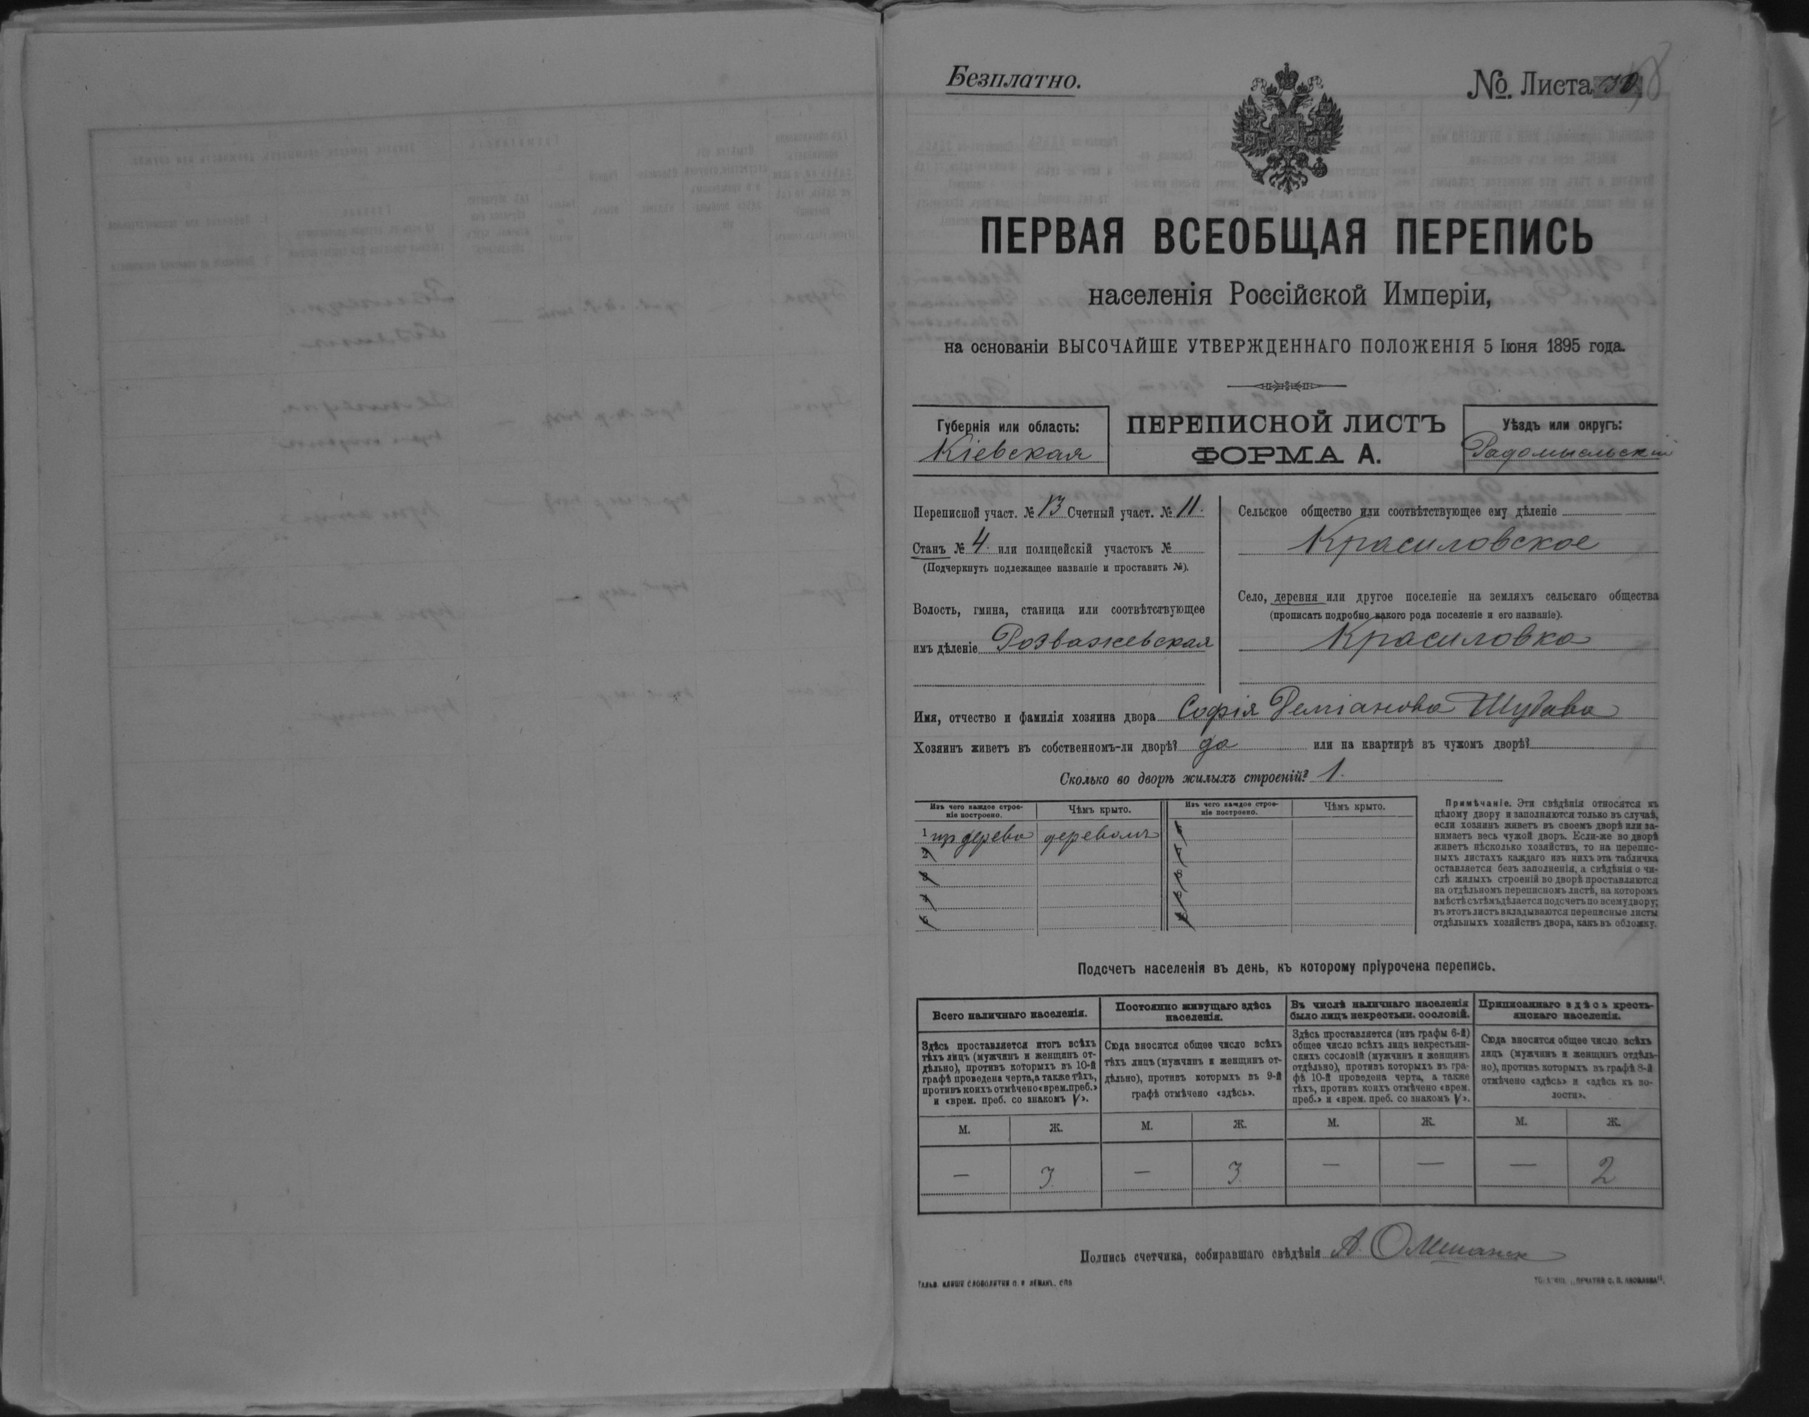 Безплатно.
№. Листа
ПЕРВАЯ ВСЕОБЩАЯ ПЕРЕПИСЬ
населенія Россійской Имперіи,
на основаніи ВЫСОЧАЙШЕ УТВЕРЖДЕННАГО ПОЛОЖЕНІЯ 5 Іюня 1895 года.
Губернія или область:
Кіевская
ПЕРЕПИСНОЙ ЛИСТЪ
ФОРМА А.
Уѣздъ или округъ:
Радомысльскій
Переписной участ. № 13 Счетный участ. № 11.
Станъ № 4. или полицейскій участокъ №
(Подчеркнуть подлежащее названіе и проставить №).
Волость, гмина, станица или соотвѣтствующее
имъ дѣленіе Розважевская
Сельское общество или соотвѣтствующее ему дѣленіе
Красиловское
Село, деревня или другое поселеніе на земляхъ сельскаго общества
(прописать подробно какого рода поселеніе и его названіе).
Красиловка
Имя, отчество и фамилія хозяина двора Софія Деміанова Шубава
Хозяинъ живетъ въ собственномъ-ли дворѣ? да или на квартирѣ въ чужомъ дворѣ?
Сколько во дворѣ жилыхъ строеній? 1.
Изъ чего каждое строе-
ніе построено.
Чѣмъ крыто.
Изъ чего каждое строе-
ніе построено.
Чѣмъ крыто.
1 дерева деревомъ
2
3
4
5
Примѣчаніе. Эти свѣдѣнія относятся къ
цѣлому двору и заполняются только въ случаѣ,
если хозяинъ живетъ въ своемъ дворѣ или за-
нимаетъ весь чужой дворъ. Если-же во дворѣ
живетъ нѣсколько хозяйствъ, то на перепис-
ныхъ листахъ каждаго изъ нихъ эта табличка
оставляется безъ заполненія, а свѣдѣнія о чи-
слѣ жилыхъ строеній во дворѣ проставляются
на отдѣльномъ переписномъ листѣ, на которомъ
вмѣстѣ съ тѣмъ дѣлается подсчетъ по всему двору;
въ этотъ листъ вкладываются переписные листы
отдѣльныхъ хозяйствъ двора, какъ въ обложку.
Подсчетъ населенія въ день, къ которому пріурочена перепись.
Всего наличнаго населенія.
Здѣсь проставляется итогъ всѣхъ
тѣхъ лицъ (мужчинъ и женщинъ от-
дѣльно), противъ которыхъ въ 10-й
графѣ проведена черта, а также тѣхъ,
противъ коихъ отмѣчено «врем. преб.»
и «врем. преб. со знакомъ V».
Постоянно живущаго здѣсь
населенія.
Сюда вносится общее число всѣхъ
тѣхъ лицъ (мужчинъ и женщинъ от-
дѣльно), противъ которыхъ въ 9-й
графѣ отмѣчено «здѣсь».
Въ числѣ наличнаго населенія
было лицъ некрестьян. сословій.
Здѣсь проставляется (изъ графы 6-й)
общее число всѣхъ лицъ некрестьян-
скихъ сословій (мужчинъ и женщинъ
отдѣльно), противъ которыхъ въ гра-
фѣ 10-й проведена черта, а также
тѣхъ, противъ коихъ отмѣчено «врем.
преб.» и «врем. преб. со знакомъ V».
Приписаннаго здѣсь кресть-
янскаго населенія.
Сюда вносится общее число всѣхъ
лицъ (мужчинъ и женщинъ отдѣль-
но), противъ которыхъ въ графѣ 8-й
отмѣчено «здѣсь» и «здѣсь къ во-
лости».
М. Ж. М. Ж. М. Ж. М. Ж.
— 3. — 3. — — — 2
Подпись счетчика, собиравшаго свѣдѣнія А.